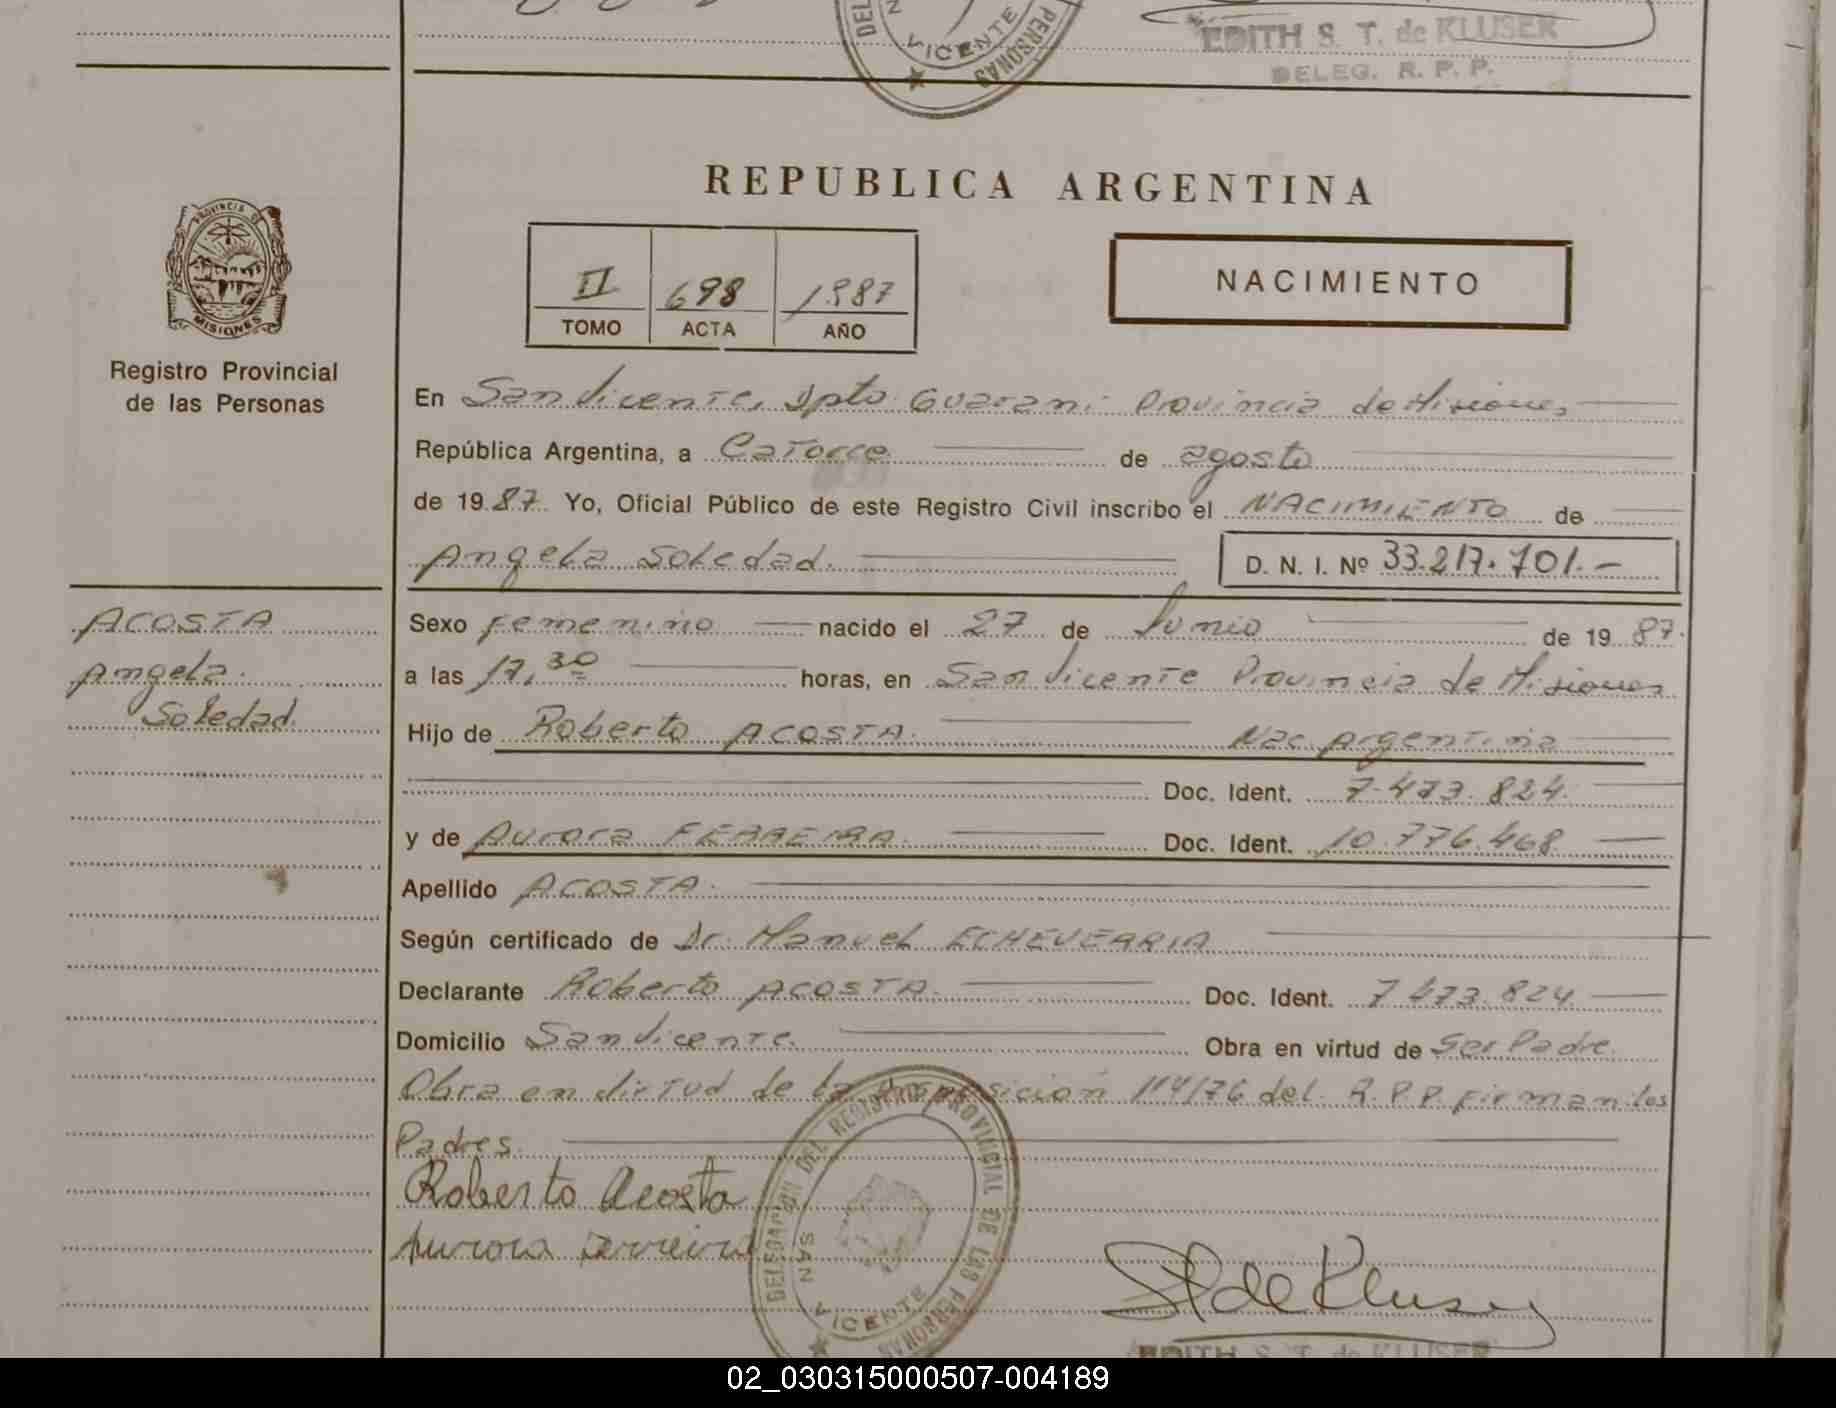 DEL
N
VICENTE
PERSONAS
EDITH S. T. de KLUSER
DELEG. R. P. P.
REPUBLICA ARGENTINA
PROVINCIA DE
MISIONES
Registro Provincial
de las Personas
II 698 1987
TOMO ACTA AÑO
NACIMIENTO
En San Vicente, Dpto Guarani Provincia de Misiones
República Argentina, a Catorce de agosto
de 1987 Yo, Oficial Público de este Registro Civil inscribo el NACIMIENTO de
Angela Soledad. D. N. I. Nº 33.217.701.-
ACOSTA
Angela
Soledad.
Sexo femenino nacido el 27 de Junio de 1987.
a las 17,30 horas, en San Vicente Provincia de Misiones
Hijo de Roberto ACOSTA. Nac. Argentina
Doc. Ident. 7.473.824.
y de Aurora FERREIRA. Doc. Ident. 10.776.468
Apellido ACOSTA.
Según certificado de Dr. Manuel ECHEVERRIA
Declarante Roberto ACOSTA. Doc. Ident. 7.473.824
Domicilio San Vicente. Obra en virtud de Ser Padre.
Obra en virtud de la disposicion 114/76 del R.P.P. firman los
Padres.
Roberto Acosta
Aurora Ferreira
DELEGACION DEL REGISTRO PROVINCIAL DE LAS PERSONAS
SAN VICENTE
S T de Kluser
EDITH S. T. de KLUSER
02_030315000507-004189